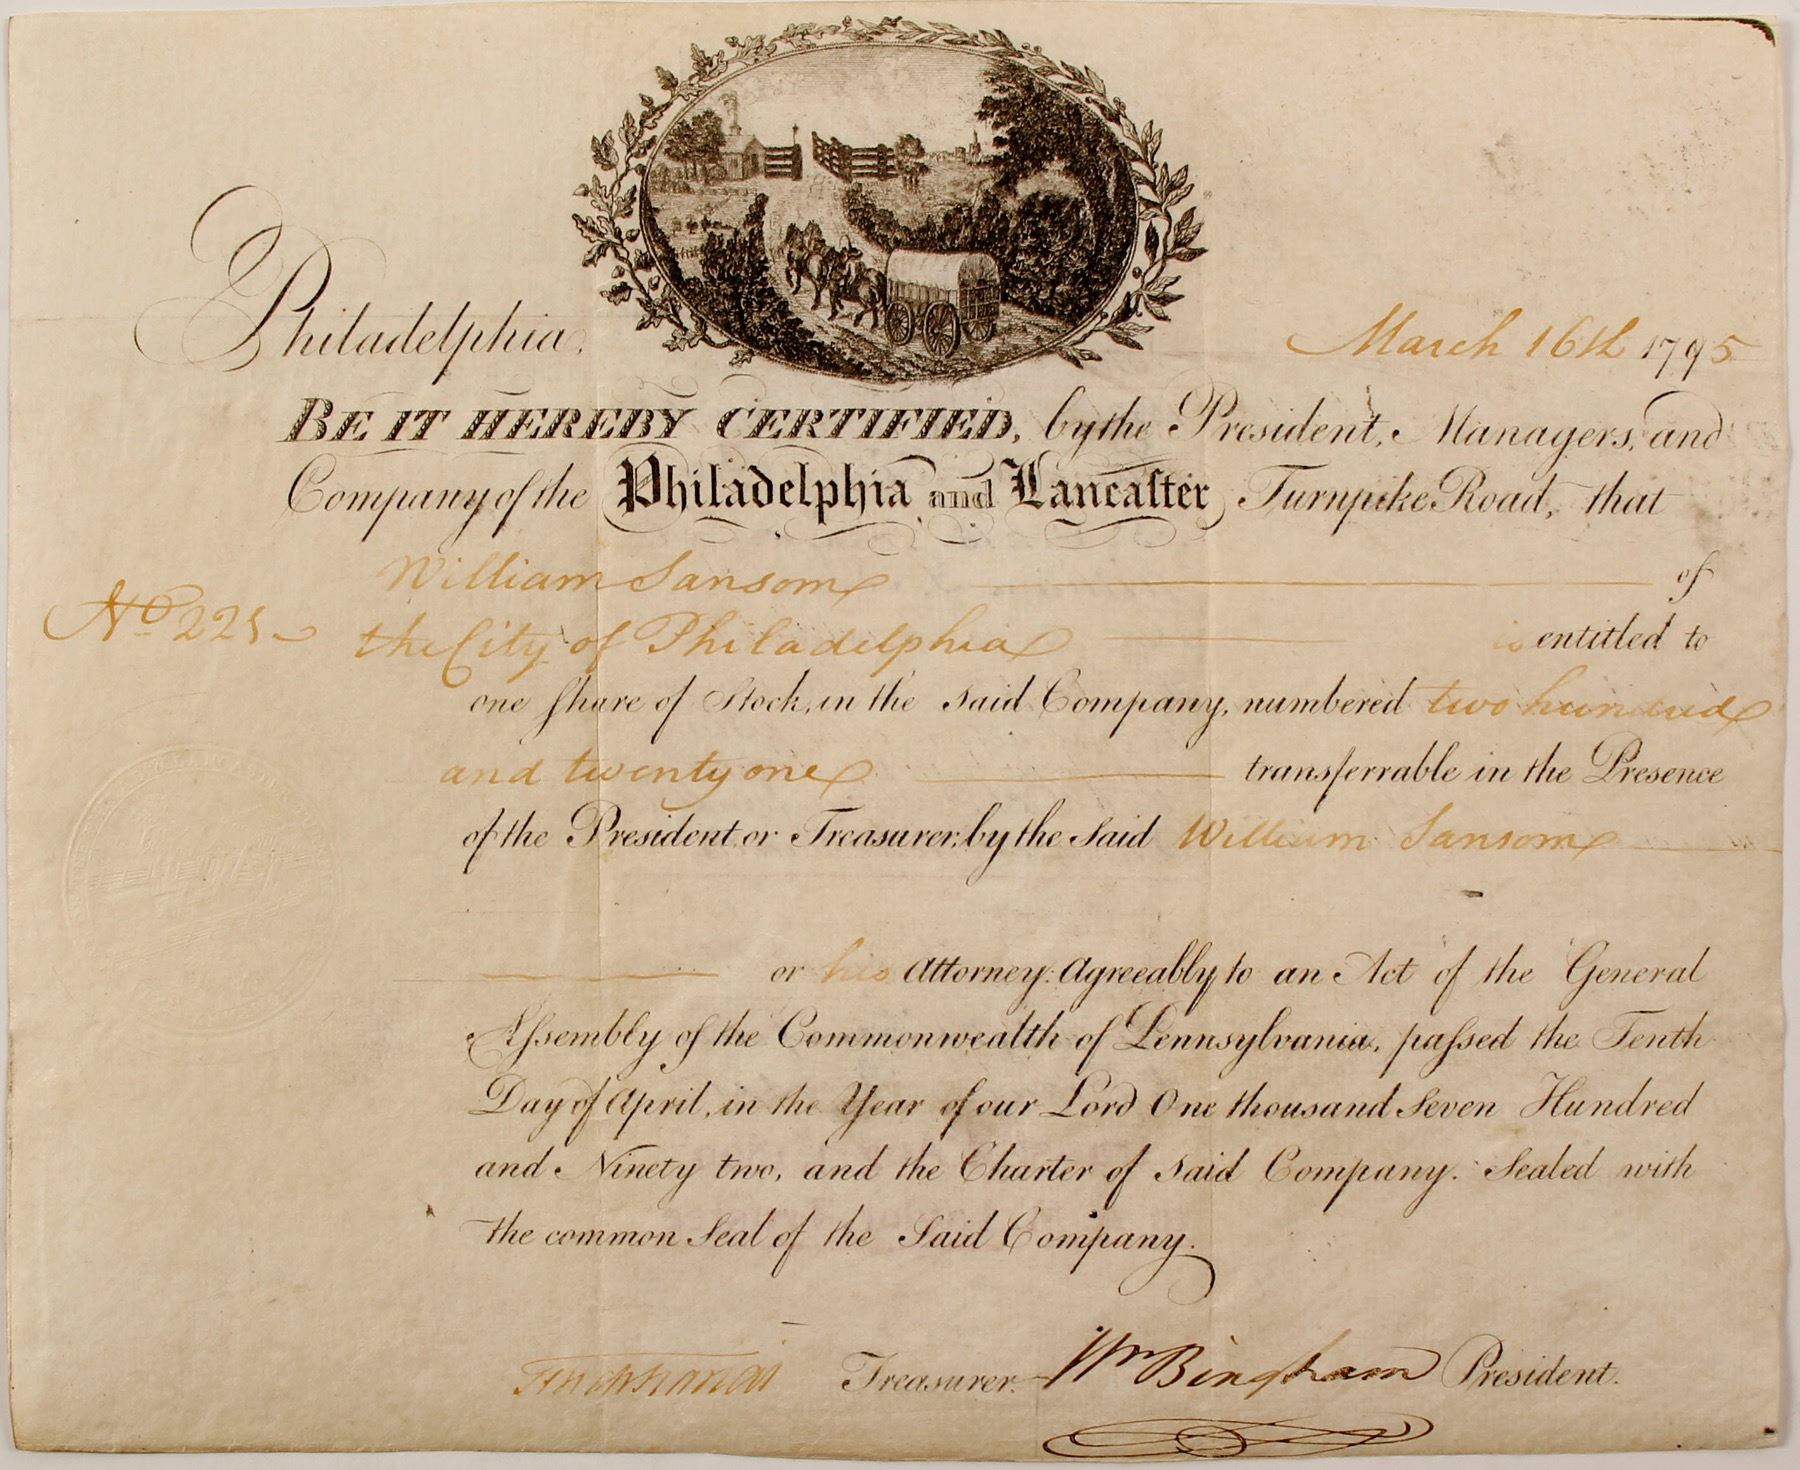 Philadelphia, March 16th 1795
BE IT HEREBY CERTIFIED, by the President, Managers, and
Company of the Philadelphia and Lancaſter Turnpike Road, that
William Sansom of
No 221 the City of Philadelphia is entitled to
one ſhare of Stock, in the said Company, numbered two hundred
and twenty one transferrable in the Presence
of the President or Treasurer, by the Said William Sansom
or his Attorney. Agreeably to an Act of the General
Aſsembly of the Commonwealth of Pennsylvania, paſsed the Tenth
Day of April, in the Year of our Lord One thousand Seven Hundred
and Ninety two, and the Charter of said Company. Sealed with
the common Seal of the Said Company.
Treasurer. Wm Bingham President.